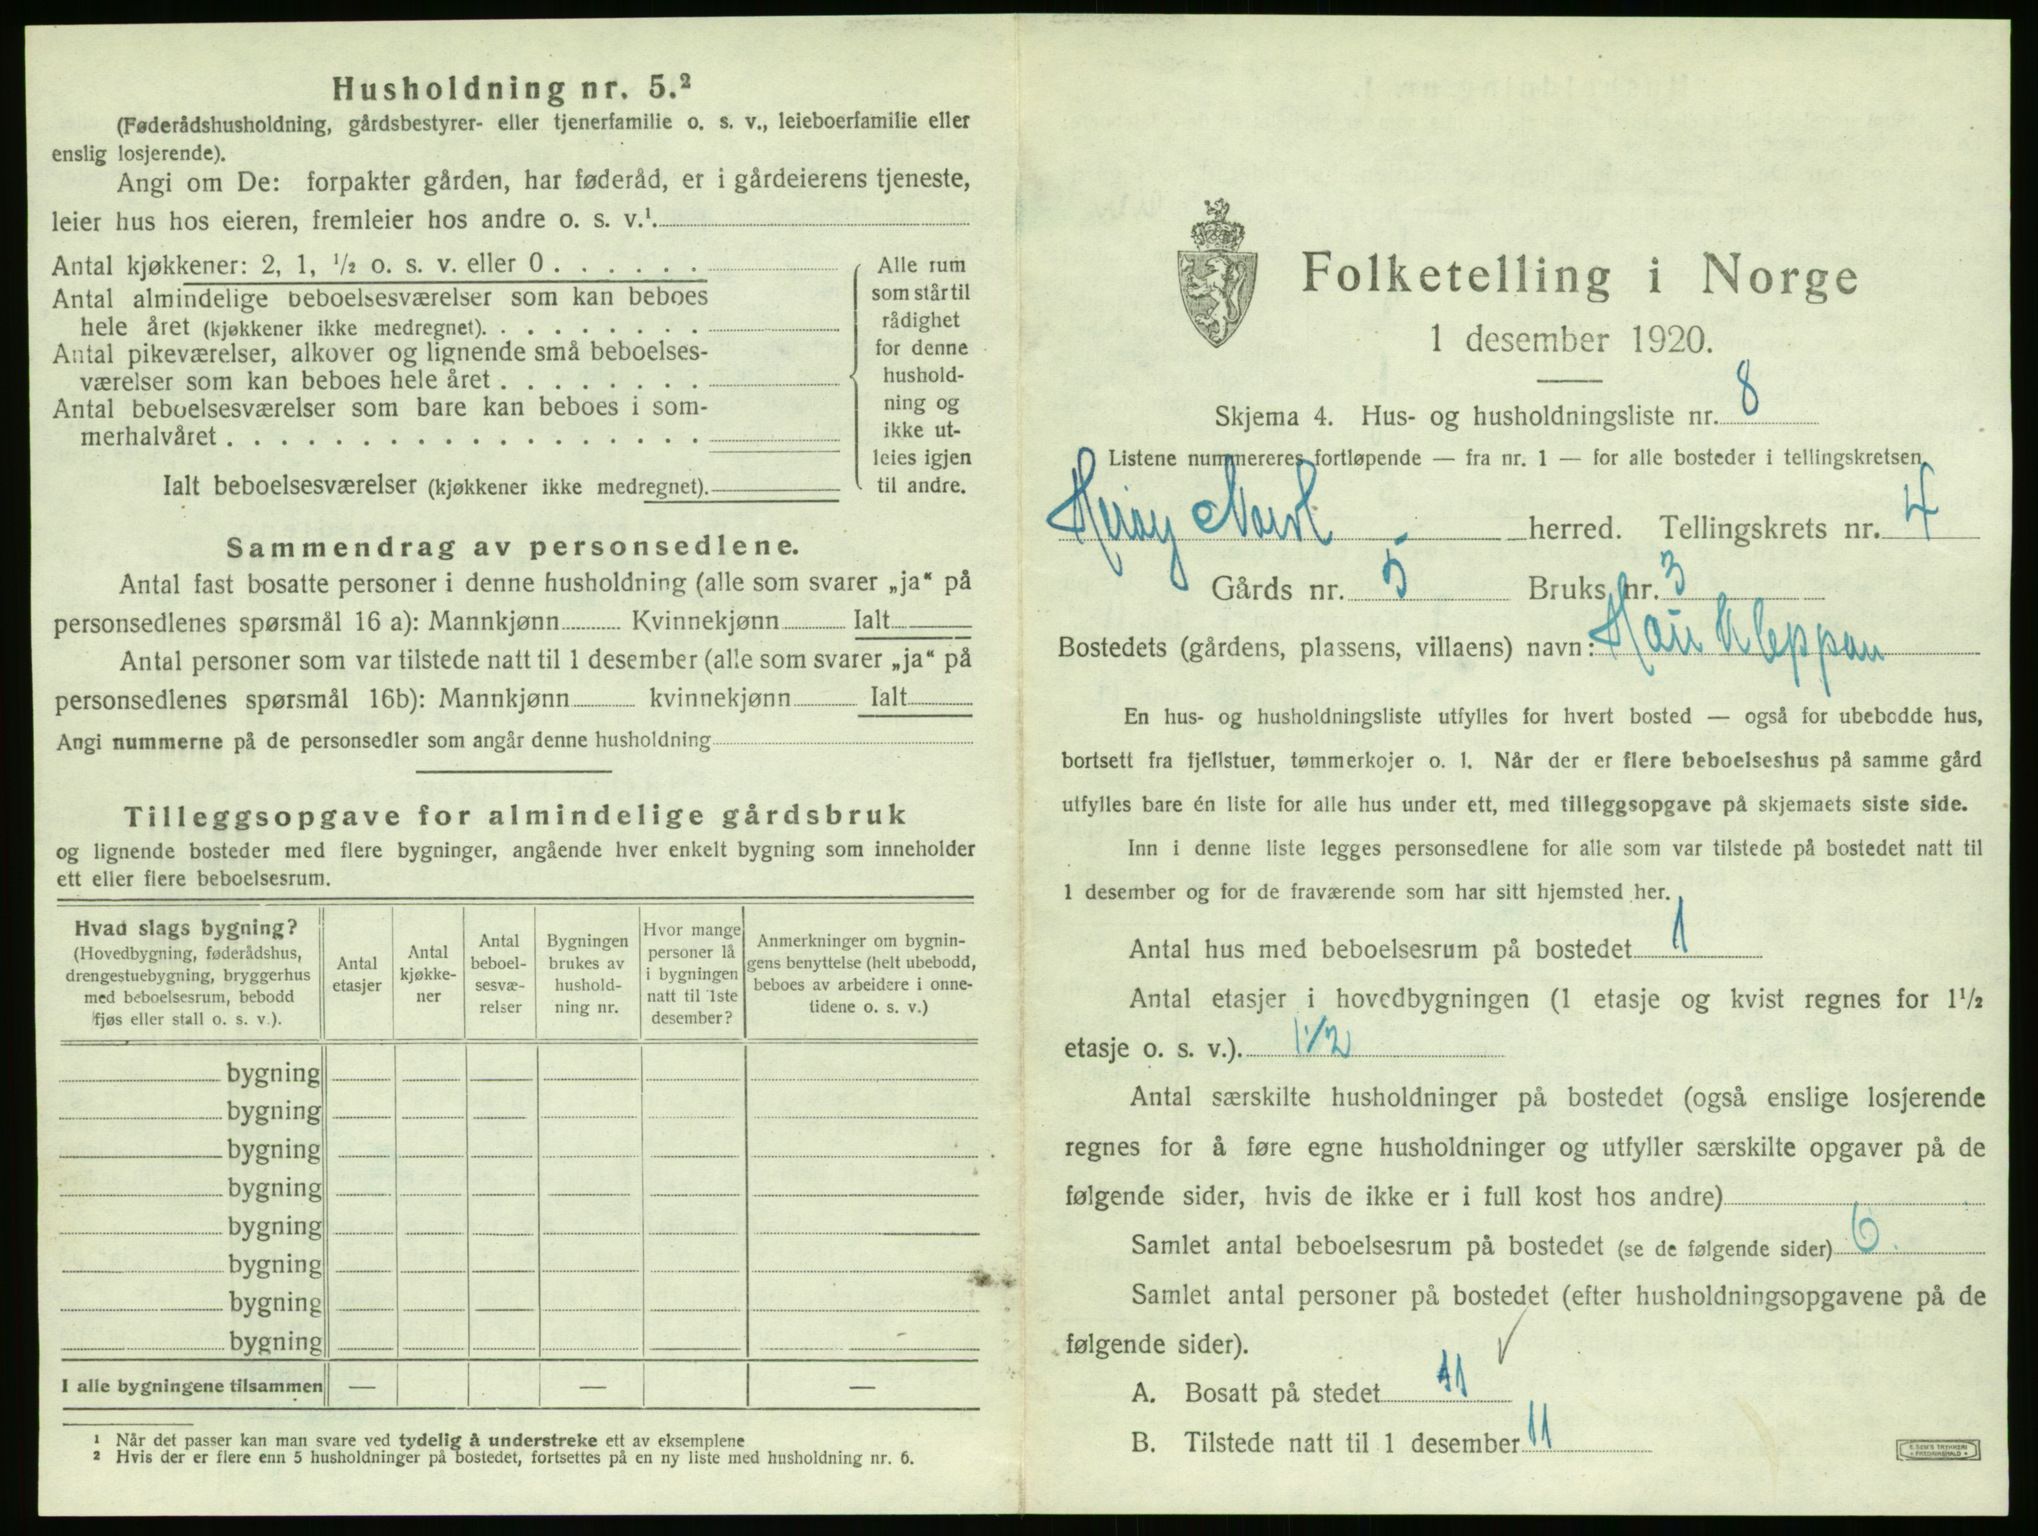 Husholdning nr. 5.²
(Føderådshusholdning, gårdsbestyrer- eller tjenerfamilie o. s. v., leieboerfamilie eller
enslig losjerende).
Angi om De: forpakter gården, har føderåd, er i gårdeierens tjeneste,
leier hus hos eieren, fremleier hos andre o. s. v.¹
Antal kjøkkener: 2, 1, ½ o. s. v. eller 0 . . . . . .
Antal almindelige beboelsesværelser som kan beboes
hele året (kjøkkener ikke medregnet). . . . . . . . .
Antal pikeværelser, alkover og lignende små beboelses-
værelser som kan beboes hele året . . . . . . . .
Antal beboelsesværelser som bare kan beboes i som-
merhalvåret . . . . . . . . . . . . . . . . . .
Ialt beboelsesværelser (kjøkkener ikke medregnet).
Alle rum
som står til
rådighet
for denne
hushold-
ning og
ikke ut-
leies igjen
til andre.
Sammendrag av personsedlene.
Antal fast bosatte personer i denne husholdning (alle som svarer „ja“ på
personsedlenes spørsmål 16 a): Mannkjønn Kvinnekjønn Ialt
Antal personer som var tilstede natt til 1 desember (alle som svarer „ja“ på
personsedlenes spørsmål 16b): Mannkjønn kvinnekjønn Ialt
Angi nummerne på de personsedler som angår denne husholdning
Tilleggsopgave for almindelige gårdsbruk
og lignende bosteder med flere bygninger, angående hver enkelt bygning som inneholder
ett eller flere beboelsesrum.
Hvad slags bygning?
(Hovedbygning, føderådshus,
drengestuebygning, bryggerhus
med beboelsesrum, bebodd
fjøs eller stall o. s. v.).
Antal
etasjer
Antal
kjøkke-
ner
Antal
beboel-
sesvæ-
relser
Bygningen
brukes av
hushold-
ning nr.
Hvor mange
personer lå
i bygningen
natt til 1ste
desember?
Anmerkninger om bygnin-
gens benyttelse (helt ubebodd,
beboes av arbeidere i onne-
tidene o. s. v.)
bygning
bygning
bygning
bygning
bygning
bygning
bygning
bygning
I alle bygningene tilsammen — — —
¹ Når det passer kan man svare ved tydelig å understreke ett av eksemplene
² Hvis der er flere enn 5 husholdninger på bostedet, fortsettes på en ny liste med husholdning nr. 6.
Folketelling i Norge
1 desember 1920.
Skjema 4. Hus- og husholdningsliste nr. 8
Listene nummereres fortløpende — fra nr. 1 — for alle bosteder i tellingskretsen.
Herøy herred. Tellingskrets nr. 4
Gårds nr. 5 Bruks nr. 3
Bostedets (gårdens, plassens, villaens) navn: Kleppan
En hus- og husholdningsliste utfylles for hvert bosted — også for ubebodde hus,
bortsett fra fjellstuer, tømmerkojer o. l. Når der er flere beboelseshus på samme gård
utfylles bare én liste for alle hus under ett, med tilleggsopgave på skjemaets siste side.
Inn i denne liste legges personsedlene for alle som var tilstede på bostedet natt til
1 desember og for de fraværende som har sitt hjemsted her.
Antal hus med beboelsesrum på bostedet 1
Antal etasjer i hovedbygningen (1 etasje og kvist regnes for 1½
etasje o. s. v.). 1½
Antal særskilte husholdninger på bostedet (også enslige losjerende
regnes for å føre egne husholdninger og utfyller særskilte opgaver på de
følgende sider, hvis de ikke er i full kost hos andre)
Samlet antal beboelsesrum på bostedet (se de følgende sider) 6.
Samlet antal personer på bostedet (efter husholdningsopgavene på de
følgende sider).
A. Bosatt på stedet 11
B. Tilstede natt til 1 desember 11
E. SEM'S TRYKKERI
FREDRIKSHALD